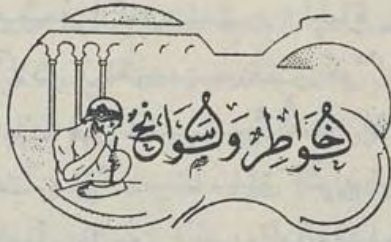 خَوَاطِر وَسَوَانِحُ